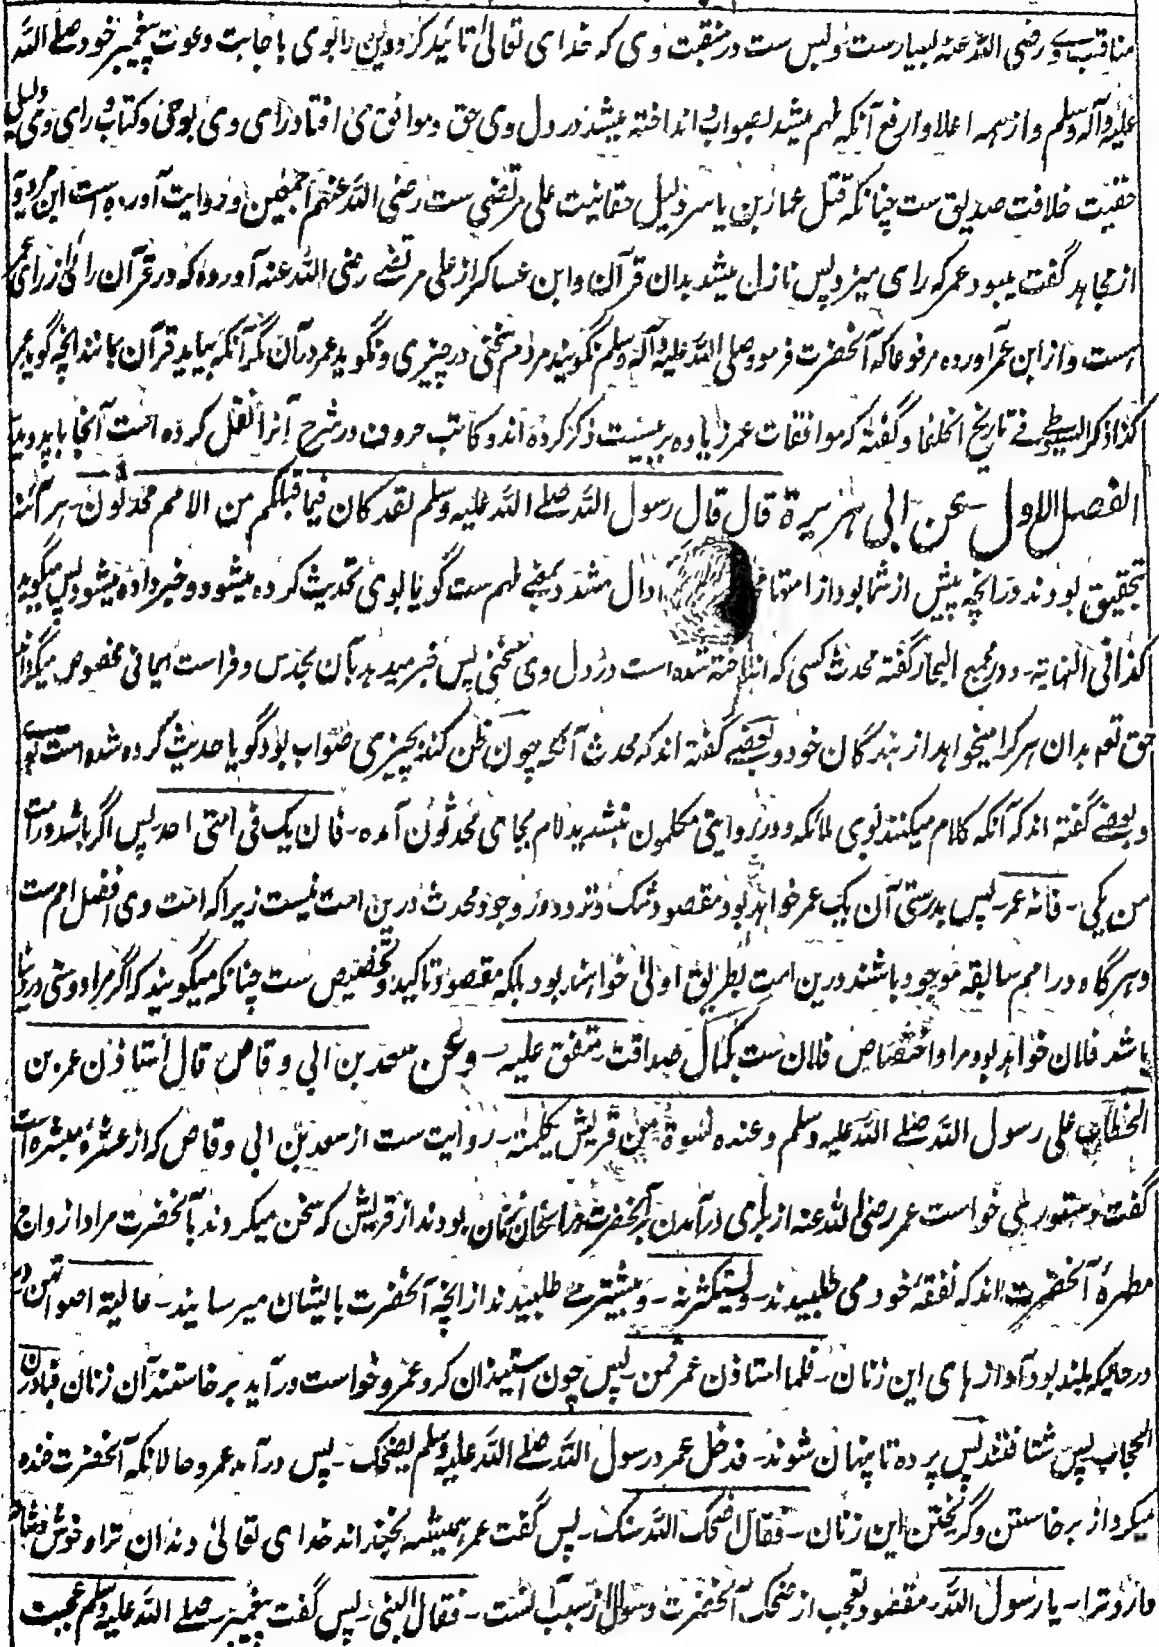 مناقب وے رضی الله عنه بسیارست و بس ست در منقبت وی که خدای تعالیٰ تائید کرد دین را بوی باجابت دعوت پیغمبر خود صلے الله
علیه وآله وسلم و از همه اعلا و ارفع آنکه ملهم میشد بصواب و انداخته میشد در دل وی حق و موافق می افتاد رای وی بوحی و کتاب و رای وی دلیل
حقیت خلافت صدیق ست چنانکه قتل عمار بن یاسر دلیل حقانیت علی مرتضی ست رضی الله عنهم اجمعین و روایت آورده است ابن مردویه
از مجاهد گفت میبود عمر که رای میزد پس نازل میشد بدان قرآن و ابن عساکر از علی مرتضے رضی الله عنه آورده که در قرآن رائی از رای عمر
است و از ابن عمر آورده مرفوعا که آنحضرت فرمود صلی الله علیه وآله وسلم نگویند مردم سخنی در چیزی و نگوید عمر در آن مگر آنکه بیاید قرآن بمانند آنچه گوید عمر
کذا ذکر السیوطے فے تاریخ الخلفاء و گفته که موافقات عمر زیاده بر بیست ذکر کرده اند و کاتب حروف در شرح آنرا نقل کرده است آنجا باید دید
الفصل الاول - عن ابی هریرة قال قال رسول الله صلے الله علیه وسلم لقد کان فیما قبلکم من الامم محدثون - هر آئنه
بتحقیق بودند در آنچه پیش از شما بود از امتها دال مشدد بمعنے ملهم ست گویا بوی تحدیث کرده میشود و خبر داده میشود پس میگوید
کذا فی النهایة - و در مجمع البحار گفته محدث کسی که انداخته شده است در دل وی سخنی پس خبر میدهد بآن بحدس و فراست ایمانی مخصوص میگرداند
حق تعم بدان هر کرا میخواهد از بندگان خود و بعضے گفته اند که محدث آنکه چون ظن کند بچیزی صواب بود گویا حدیث کرده شده است بوے
و بعضے گفته اند که آنکه کلام میکنند بوی ملائکه و در روایتی مکلمون بتشدید لام بجای محدثون آمده - فان یک فی امتی احد پس اگر باشد در امت
من یکی - فانه عمر - پس بدرستی آن یک عمر خواهد بود مقصود شک و تردد در وجود محدث درین امت نیست زیرا که امت وی افضل امم ست
و هر گاه در امم سابقه موجود باشند درین امت بطریق اولیٰ خواهند بود بلکه مقصود تاکید و تخصیص ست چنانکه میگویند که اگر مرا دوستی در دنیا
باشد فلان خواهد بود مراد اختصاص فلان ست بکمال صداقت - متفق علیه - وعن سعد بن ابی وقاص قال استاذن عمر بن
الخطاب علی رسول الله صلے الله علیه وسلم وعنده نسوة من قریش یکلمنه - روایت ست از سعد بن ابی وقاص که از عشره مبشره است
گفت دستوری خواست عمر رضی الله عنه از برای در آمدن بر آنحضرت زنان بودند از قریش که سخن میکردند بآنحضرت مراد ازواج
مطهرهٔ آنحضرت اند که نفقهٔ خود می طلبیدند - ویستکثرنه - و بیشتر مے طلبیدند از آنچه آنحضرت بایشان میرسانید - عالیة اصواتهن
در حالیکه بلند بود آوازهای این زنان - فلما استاذن عمر قمن - پس چون استیذان کرد عمر و خواست در آید برخاستند آن زنان فبادرن
الحجاب پس شتافتند پس پرده تا پنهان شوند - فدخل عمر و رسول الله صلے الله علیه وسلم یضحک - پس درآمد عمر و حالانکه آنحضرت خنده
میکرد از برخاستن و گریختن این زنان - فقال اضحک الله سنک - پس گفت عمر همیشه بخنداند خدای تعالیٰ دندان ترا و خوش
دارد ترا - یا رسول الله - مقصود تعجب از ضحک آنحضرت و سوال از سبب آنست - فقال النبی - پس گفت پیغمبر - صلے الله علیه وسلم عجبت